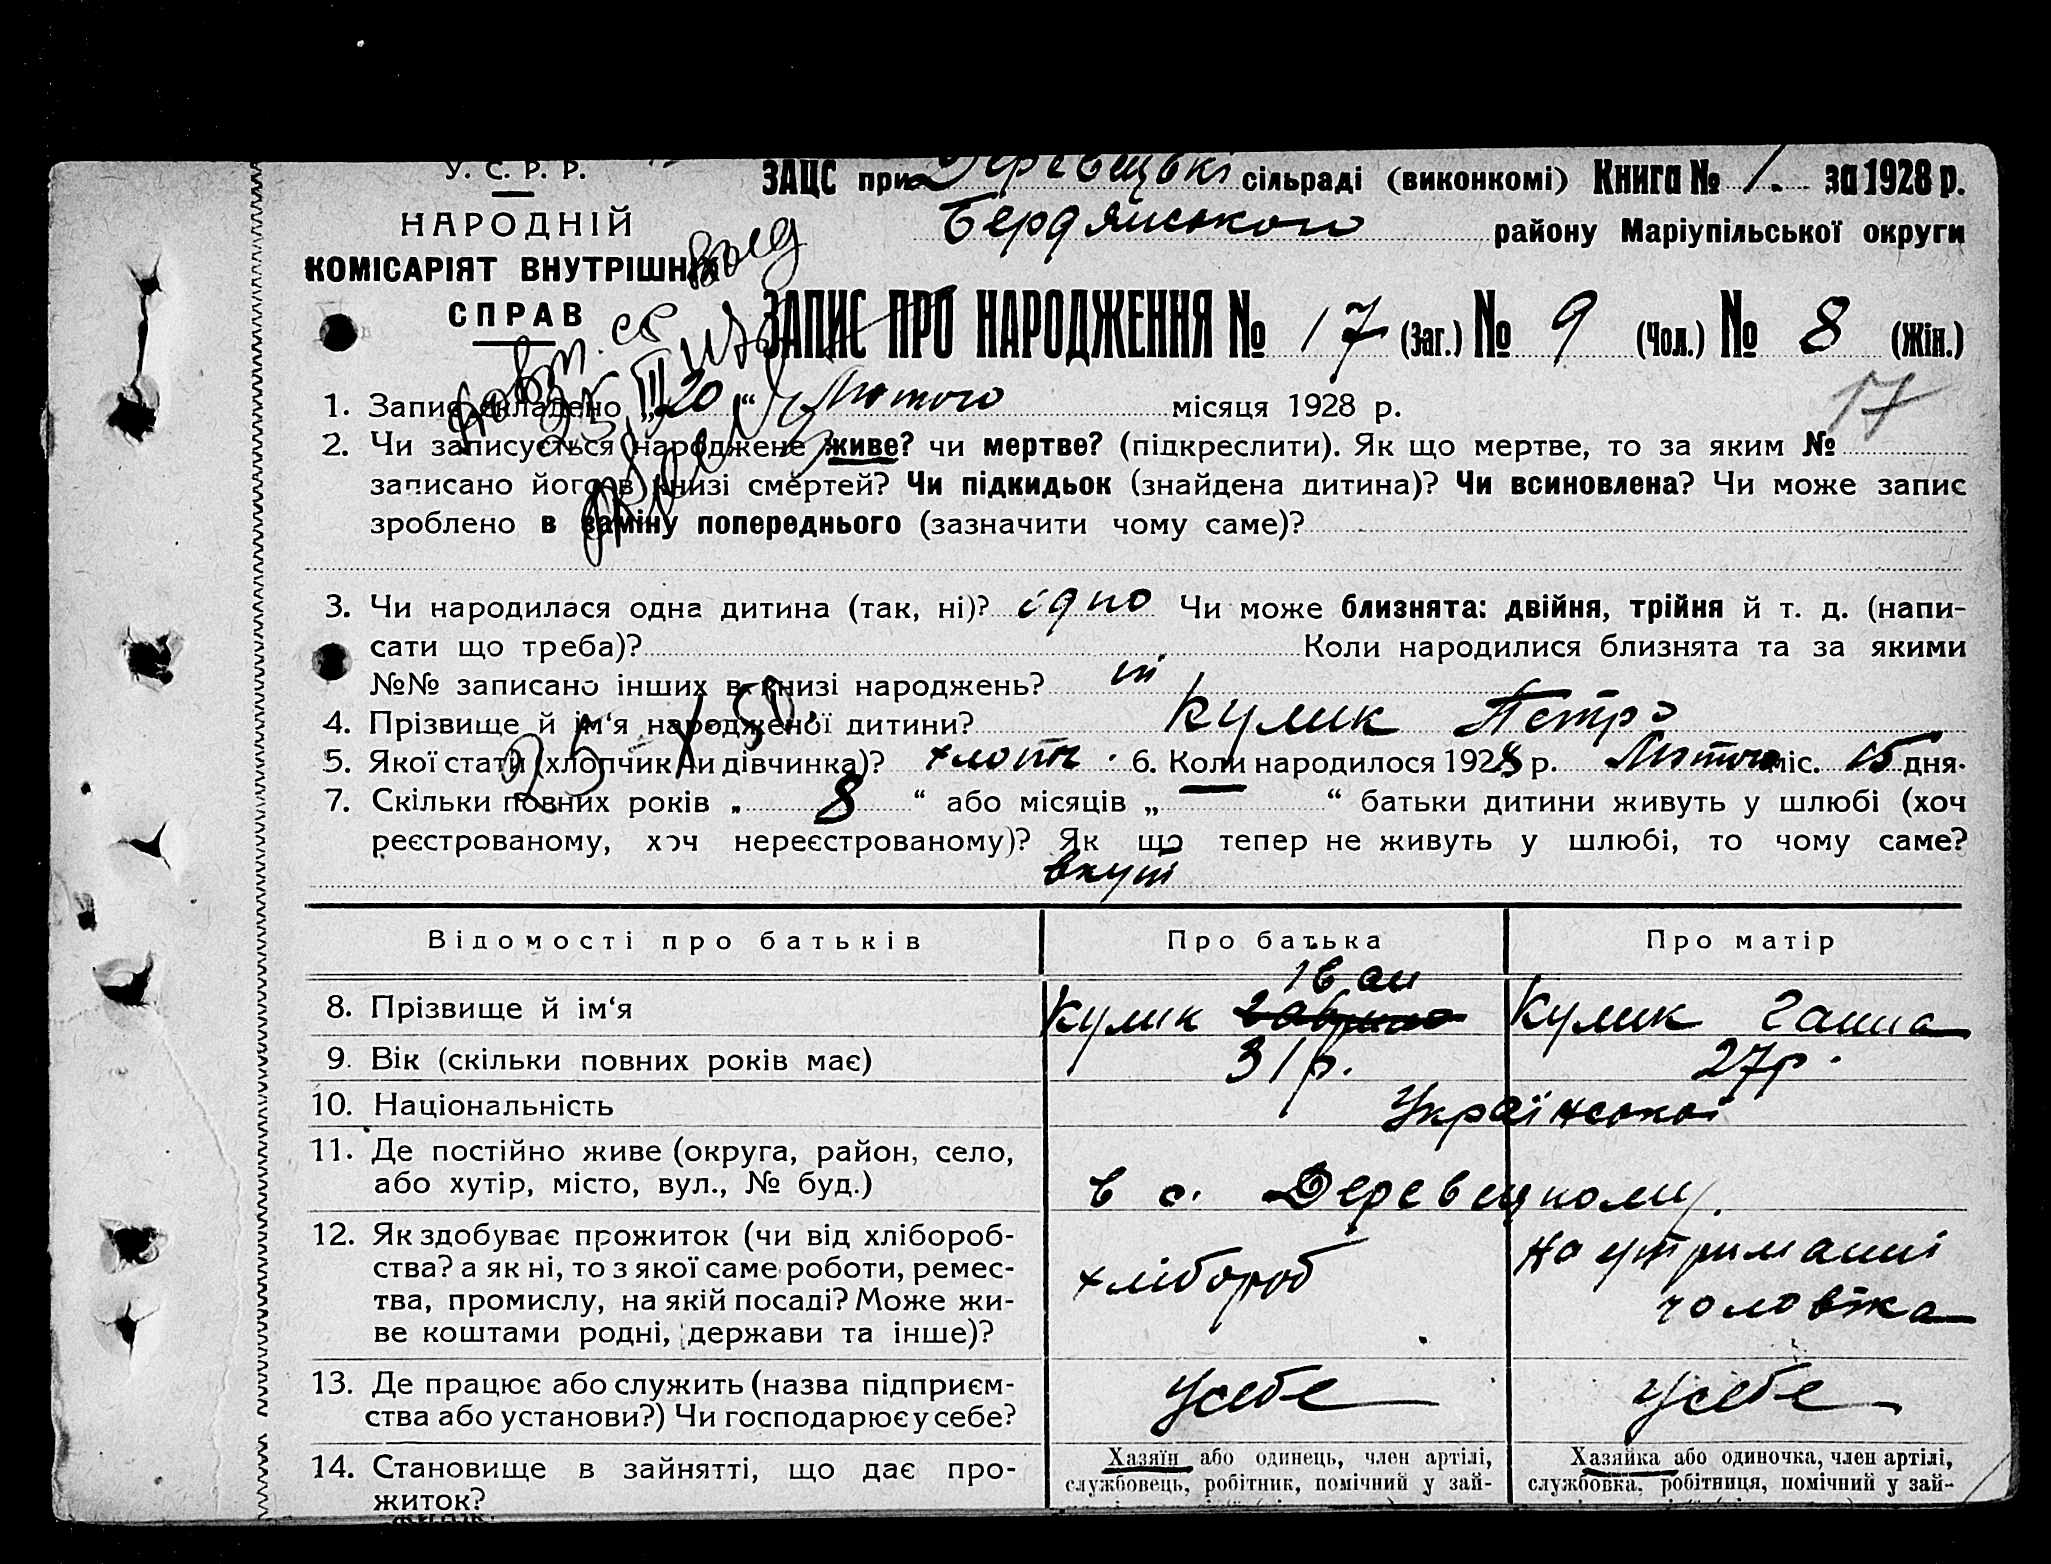 У. С. Р. Р.
НАРОДНІЙ
КОМІСАРІЯТ ВНУТРІШНІХ
СПРАВ
ЗАЦС при Деревецькі сільраді (виконкомі) Книга № 1. за 1928 р.
Бердянського району Маріупільської округи
ЗАПИС ПРО НАРОДЖЕННЯ № 17 (Заг.) № 9 (Чол.) № 8 (Жін.)
17
1. Запис складено „20“ Лютого місяця 1928 р.
2. Чи записується народжене живе? чи мертве? (підкреслити). Як що мертве, то за яким №
записано його в книзі смертей? Чи підкидьок (знайдена дитина)? Чи всиновлена? Чи може запис
зроблено в заміну попереднього (зазначити чому саме)?
3. Чи народилася одна дитина (так, ні)? одно Чи може близнята: двійня, трійня й т. д. (напи-
сати що треба)? Коли народилися близнята та за якими
№№ записано інших в книзі народжень? ні
4. Прізвище й ім‘я народженої дитини? Кулик Петро
25-X-50
5. Якої стати (хлопчик чи дівчинка)? хлопч. 6. Коли народилося 1928 р. Лютого міс. 15 дня.
7. Скільки повних років „ 8 “ або місяців „ — “ батьки дитини живуть у шлюбі (хоч
реєстрованому, хоч нереєстрованому)? Як що тепер не живуть у шлюбі, то чому саме?
вкупі
Відомості про батьків Про батька Про матір
Іван
8. Прізвище й ім‘я Кулик Гаврило Кулик Ганна
9. Вік (скільки повних років має) 31 р. 27 р.
10. Національність Української
11. Де постійно живе (округа, район, село,
або хутір, місто, вул., № буд.) в с. Деревецкому.
12. Як здобуває прожиток (чи від хлібороб-
ства? а як ні, то з якої саме роботи, ремес-
тва, промислу, на якій посаді? Може жи-
ве коштами родні, держави та інше)?
хлібороб
на утриманні
чоловіка
13. Де працює або служить (назва підприєм-
ства або установи?) Чи господарює у себе?
Усебе Усебе
14. Становище в зайнятті, що дає про-
житок?
Хазяїн або одинець, член артілі,
службовець, робітник, помічний у зай-
Хазяйка або одиночка, член артілі,
службовка, робітниця, помічний у зай-